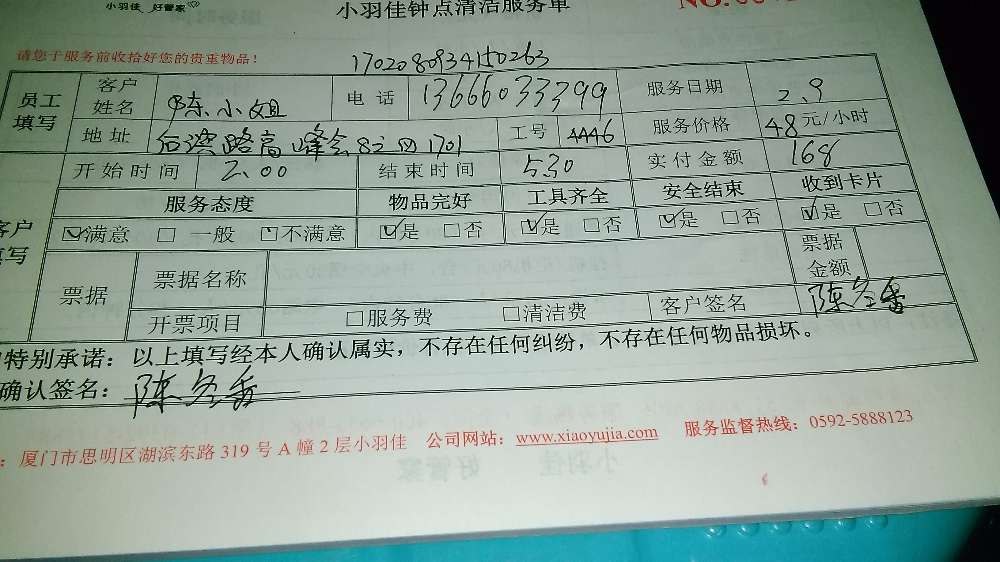 小羽佳 好管家
小羽佳钟点清洁服务单
NO.
请您于服务前收拾好您的贵重物品!
1702080934150263
员工填写 客户姓名 陈小姐 电话 13666033399 服务日期 2.9
地址 高峰会 1701 工号 4446 服务价格 48元/小时
开始时间 2.00 结束时间 5.30 实付金额 168
服务态度 物品完好 工具齐全 安全结束 收到卡片
客户填写 ☑满意 □一般 □不满意 ☑是 □否 ☑是 □否 ☑是 □否 ☑是 □否
票据 票据名称 票据金额
开票项目 □服务费 □清洁费 客户签名 陈冬香
特别承诺：以上填写经本人确认属实，不存在任何纠纷，不存在任何物品损坏。
确认签名：陈冬香
：厦门市思明区湖滨东路319号A幢2层小羽佳 公司网站：www.xiaoyujia.com 服务监督热线：0592-5888123